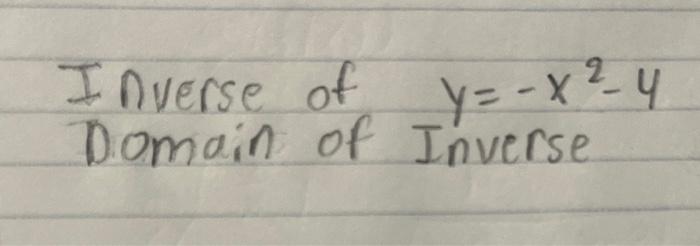 Inverse of y=-x²-4
Domain of Inverse